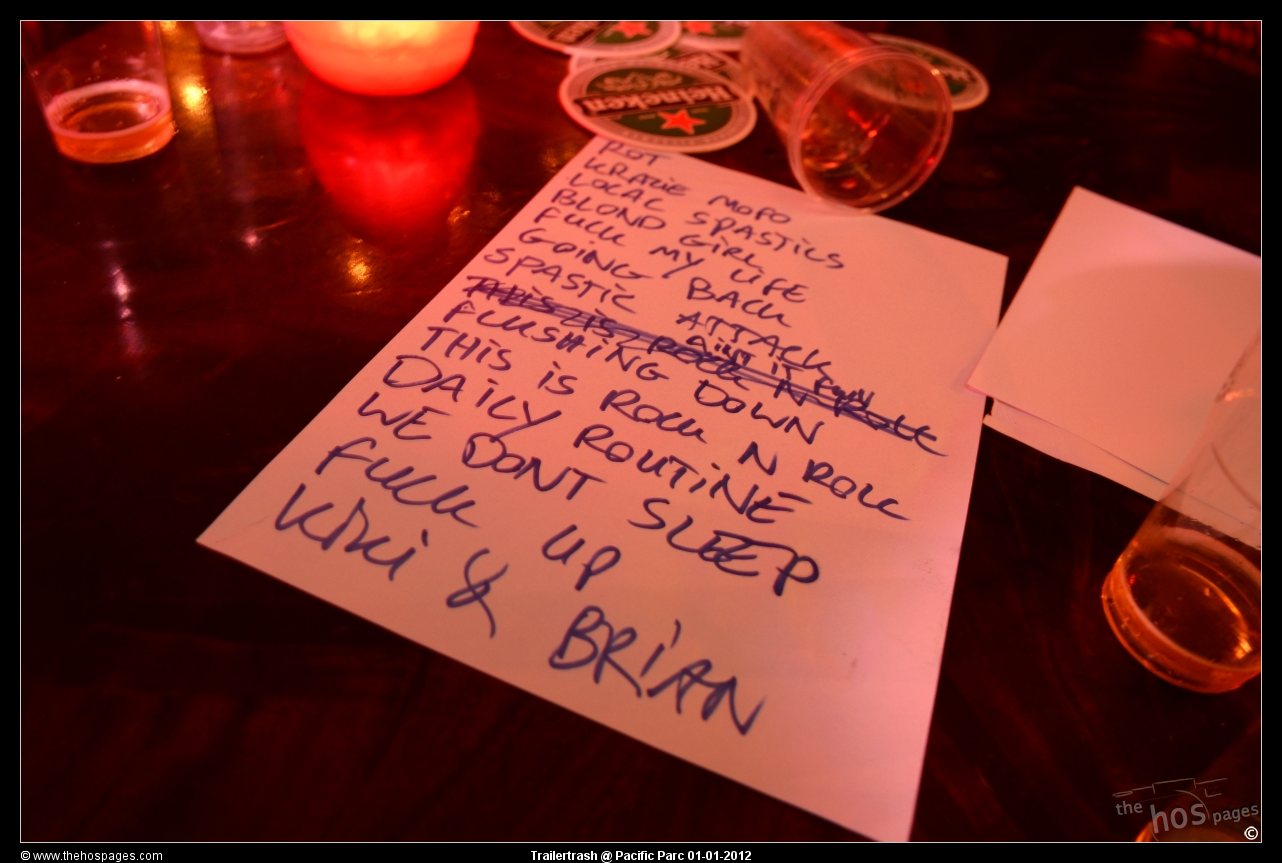 Heineken
ROT
KRAZIE MOFO
LOCAL SPASTICS
BLOND GIRL
FUCK MY LIFE
GOING BACK
SPASTIC ATTACK
AiNT iT FUN
THiS IS ROCK N ROLL
FLUSHING DOWN
THIS iS ROCK N ROLL
DAiLY ROUTINE
WE DONT SLEEP
FUCK UP
KiKi & BRiAN
the hos pages
©
© www.thehospages.com
Trailertrash @ Pacific Parc 01-01-2012